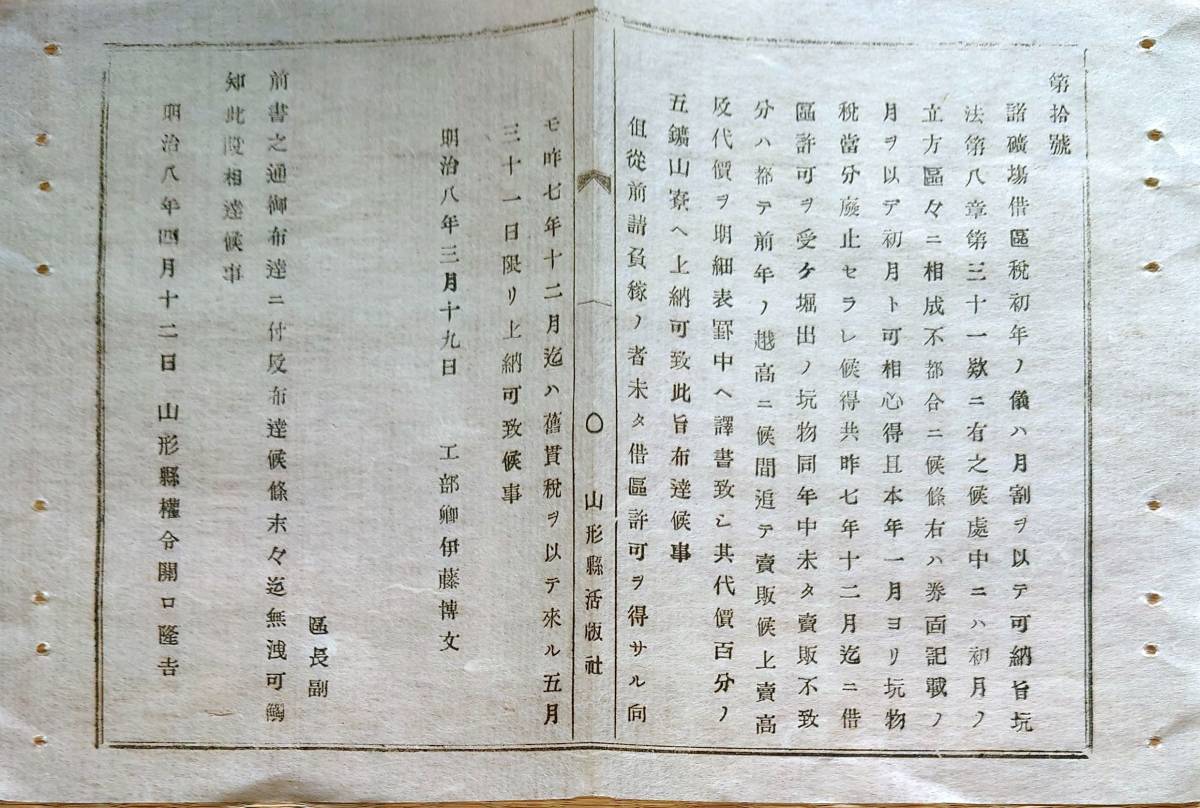 第拾號
諸礦塲借區稅初年ノ儀ハ月割ヲ以テ可納旨坑
法第八章第三十一欵ニ有之候處中ニハ初月ノ
立方區々ニ相成不都合ニ候條右ハ券面記載ノ
月ヲ以テ初月ト可相心得且本年一月ヨリ坑物
稅當分廢止セラレ候得共昨七年十二月迄ニ借
區許可ヲ受ケ堀出ノ坑物同年中未タ賣販不致
分ハ都テ前年ノ越高ニ候間追テ賣販候上賣高
及代價ヲ明細表罫中ヘ譯書致シ其代價百分ノ
五鑛山寮ヘ上納可致此旨布達候事
但從前請負稼ノ者未タ借區許可ヲ得サル向
〇 山形縣活版社
モ昨七年十二月迄ハ舊貫稅ヲ以テ來ル五月
三十一日限リ上納可致候事
明治八年三月十九日 工部卿伊藤博文
區長副
前書之通御布達ニ付及布達候條末々迄無洩可觸
知此段相達候事
明治八年四月十二日 山形縣權令關口隆吉